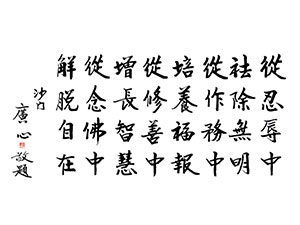 從忍辱中
祛除無明
從作務中
培養福報
從修善中
增長智慧
從念佛中
解脫自在
沙門
廣心敬題